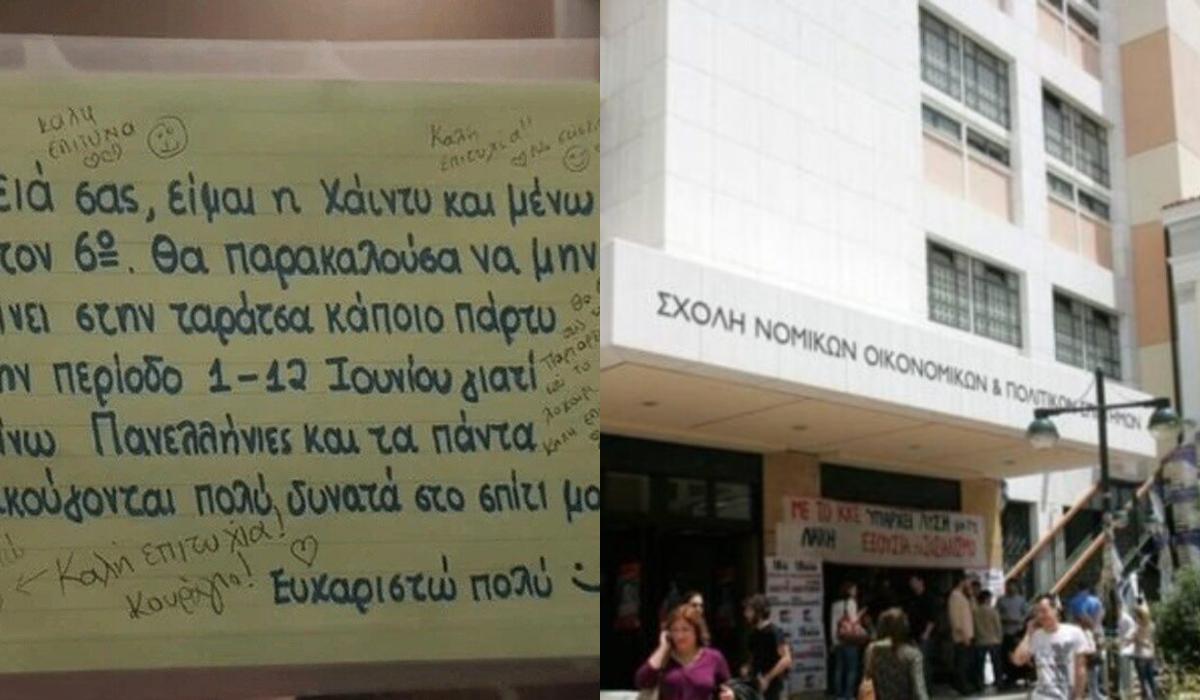 καλη
επιτυχια
Καλή
επιτυχία!!
ειά σας, είμαι η Χάιντυ και μένω
τον 6º. Θα παρακαλούσα να μην
ίνει στην ταράτσα κάποιο πάρτυ
ην περίοδο 1-12 Ιουνίου γιατί
ίνω Πανελλήνιες και τα πάντα
κούγονται πολύ δυνατά στο σπίτι μο
← Καλή επιτυχία!
κουράγιο!
Ευχαριστώ πολύ
ΣΧΟΛΗ ΝΟΜΙΚΩΝ ΟΙΚΟΝΟΜΙΚΩΝ & ΠΟΛΙΤΙΚΩΝ ΕΠΙΣΤΗΜΩΝ
ΜΕ ΤΟ ΚΚΕ ΥΠΑΡΧΕΙ ΛΥΣΗ για τη
ΛΑΪΚΗ ΕΞΟΥΣΙΑ το ΣΟΣΙΑΛΙΣΜΟ